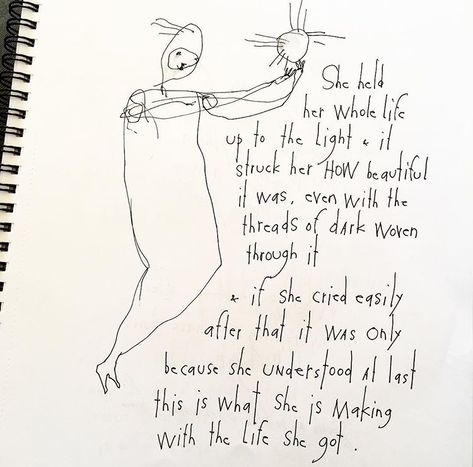 She held
her whole life
up to the light & it
struck her HOW beautiful
it was, even with the
threads of dark woven
through it
& if she cried easily
after that it was only
because she understood at last
this is what she is making
with the life she got.